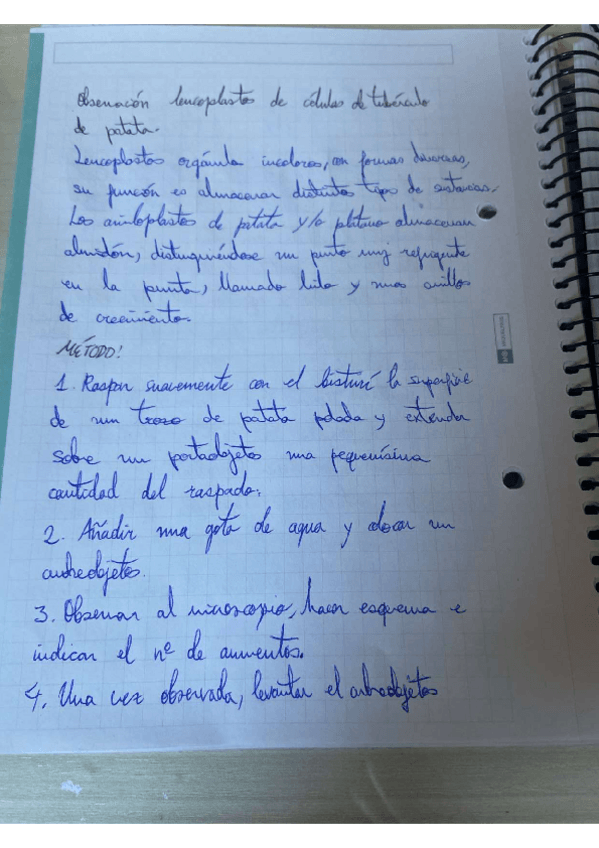 Observación leucoplastos de células de tubérculo
de patata.
Leucoplastos orgánulo incoloros, con formas diversas,
su función es almacenar distintos tipos de sustancias.
Los amiloplastos de patata y/o plátano almacenan
almidón, distinguiéndose un punto muy refringente
en la punta, llamado hilo y unos anillos
de crecimiento.
MÉTODO!
1. Raspar suavemente con el bisturí la superficie
de un trozo de patata pelada y extender
sobre un portaobjetos una pequeñísima
cantidad del raspado.
2. Añadir una gota de agua y colocar un
cubreobjetos.
3. Observar al microscopio, hacer esquema e
indicar el nº de aumentos.
4. Una vez observada, levantar el cubreobjetos